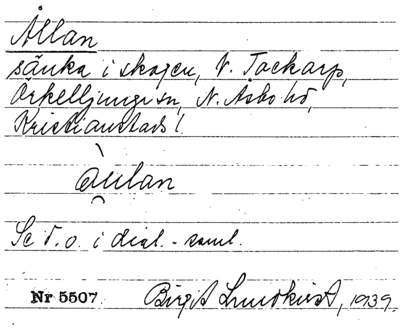 Ållan
sänka i skogen, V. Tockarp,
Örkelljunga sn, N. Åsbo hd,
Kristianstads l.
åulan
Se d.o. i dial.-saml.
Nr 5507. Birgit Lundkvist, 1939.